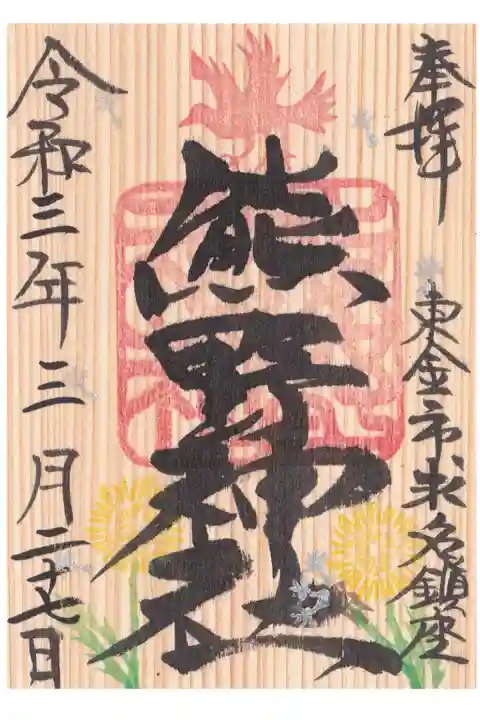 奉拝
東金市求名鎮座
熊野神社
令和三年三月二十七日